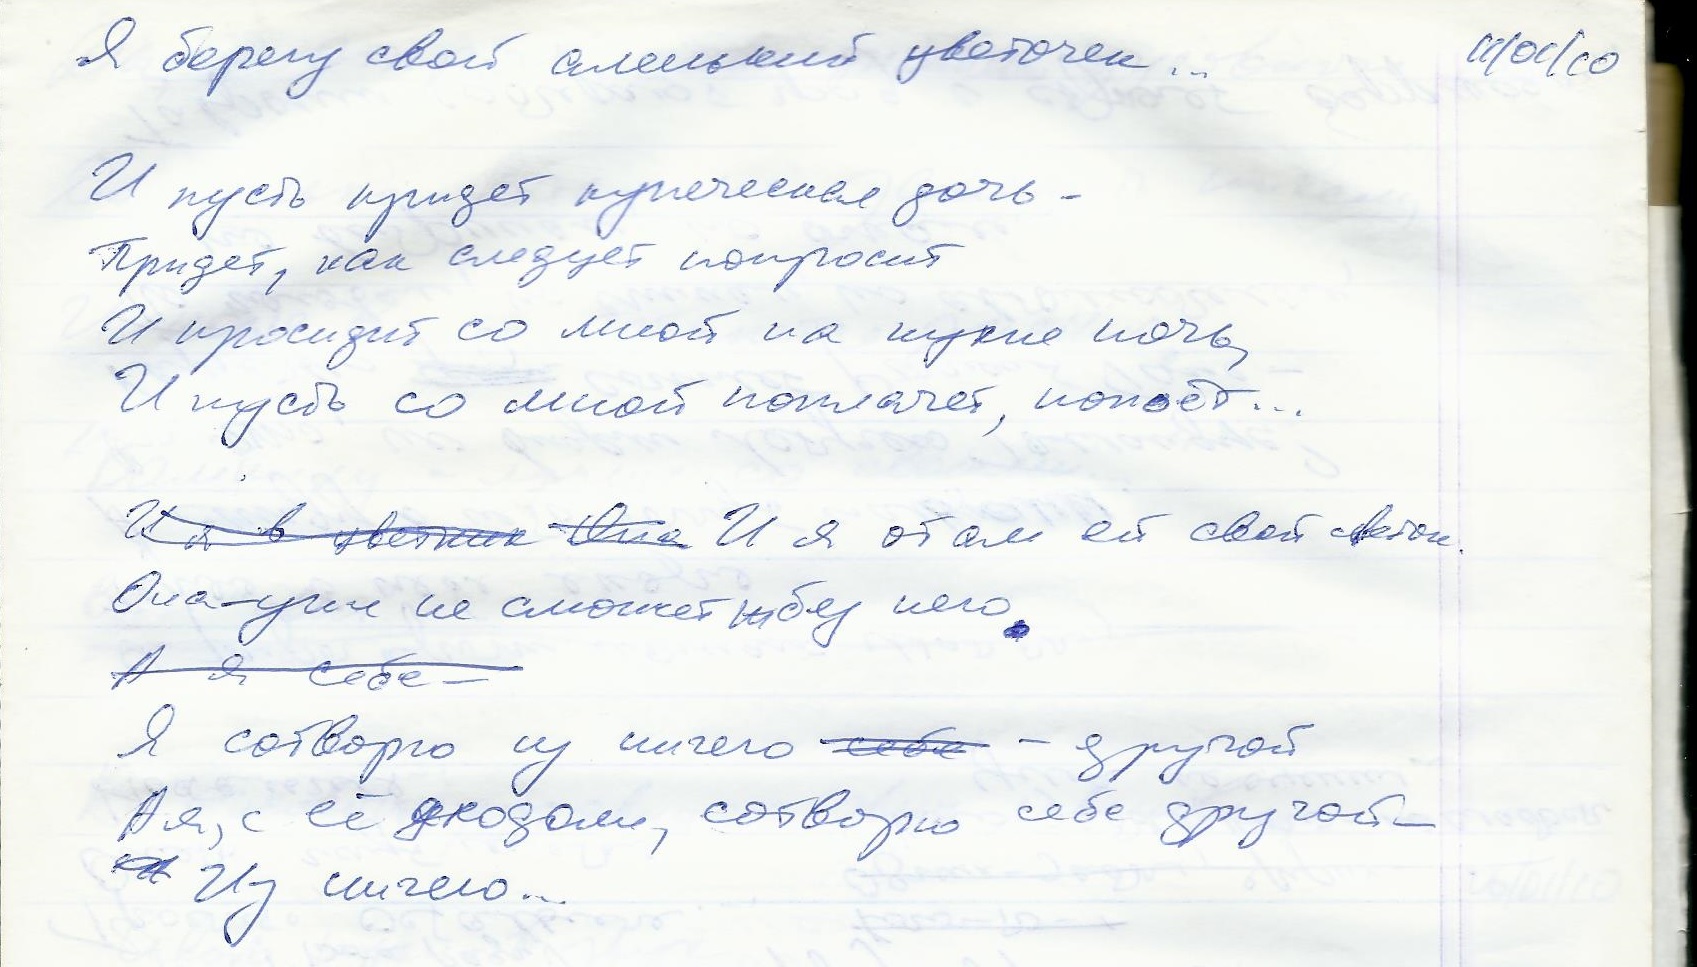 Я берегу свой аленький цветочек... 11/01/10
И пусть придет купеческая дочь -
Придет, как следует попросит
И просидит со мной на кухне ночь,
И пусть со мной поплачет, попоёт...
И я в цветник Она И я отдам ей свой цветок.
Она-уж не сможет без него.
А я себе -
Я сотворю из ничего себе - другой
А я, с её уходом, сотворю себе другой -
Из ничего...